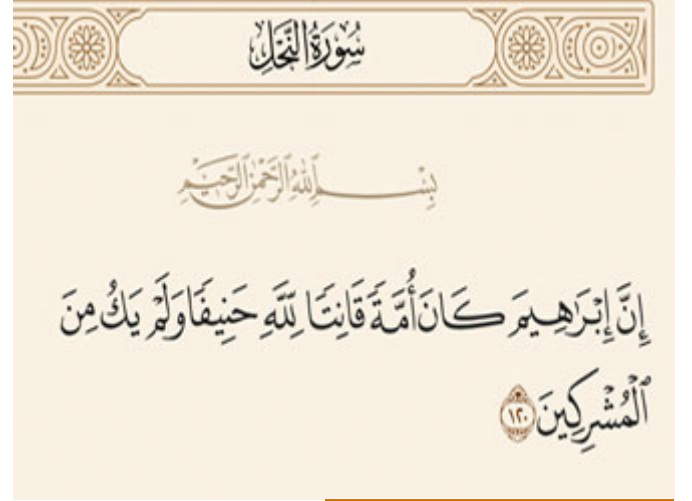 سُورَةُ النَّحْلِ
بِسْمِ ٱللَّهِ ٱلرَّحْمَٰنِ ٱلرَّحِيمِ
إِنَّ إِبْرَٰهِيمَ كَانَ أُمَّةٗ قَانِتٗا لِّلَّهِ حَنِيفٗا وَلَمۡ يَكُ مِنَ
ٱلۡمُشۡرِكِينَ ١٢٠